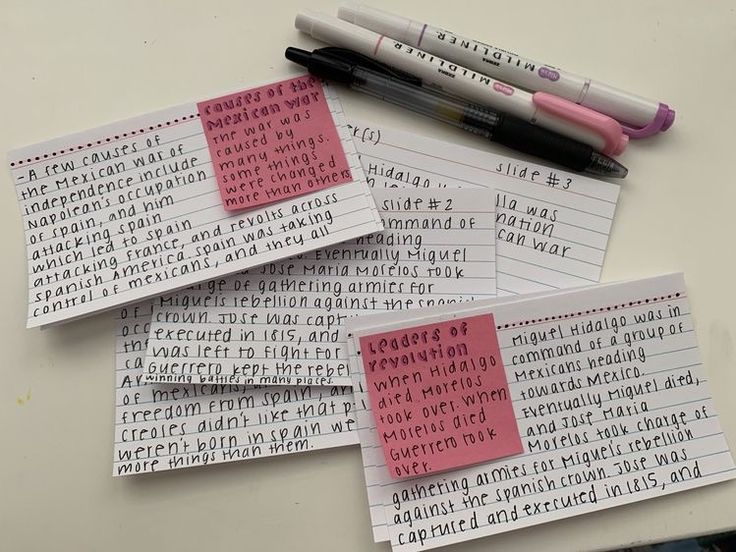 Causes of the
Mexican War
The war was
caused by
many things.
some things
were changed
more than others
- A few causes of
the Mexican war of
independence include
Napolean's occupation
of spain, and him
attacking spain
which led to spain
attacking France, and revolts across
spanish America. spain was taking
control of mexicans, and they all
MILDLINER
ZEBRA
MILDLINER
ZEBRA
er(s)
slide #3
Hidalgo
lla was
nation
can war
slide #2
mmand of
heading
Eventually Miguel
Jose Maria Morelos took
ge of gathering armies for
Miguels rebellion against the spanish
crown. Jose was capt
executed in 1815, and
was left to fight for
Guerrero kept the rebel
winning battles in many places.
of mexicans.
freedom from spain, ar
creoles didn't like that p
weren't born in spain we
more things than them.
Leaders of
revolution
when Hidalgo
died, Morelos
took over. When
Morelos died
Guerrero took
over.
Miguel Hidalgo was in
command of a group of
Mexicans heading
towards Mexico.
Eventually Miguel died,
and Jose Maria
Morelos took charge of
gathering armies for Miguel's rebellion
against the spanish crown. Jose was
captured and executed in 1815, and